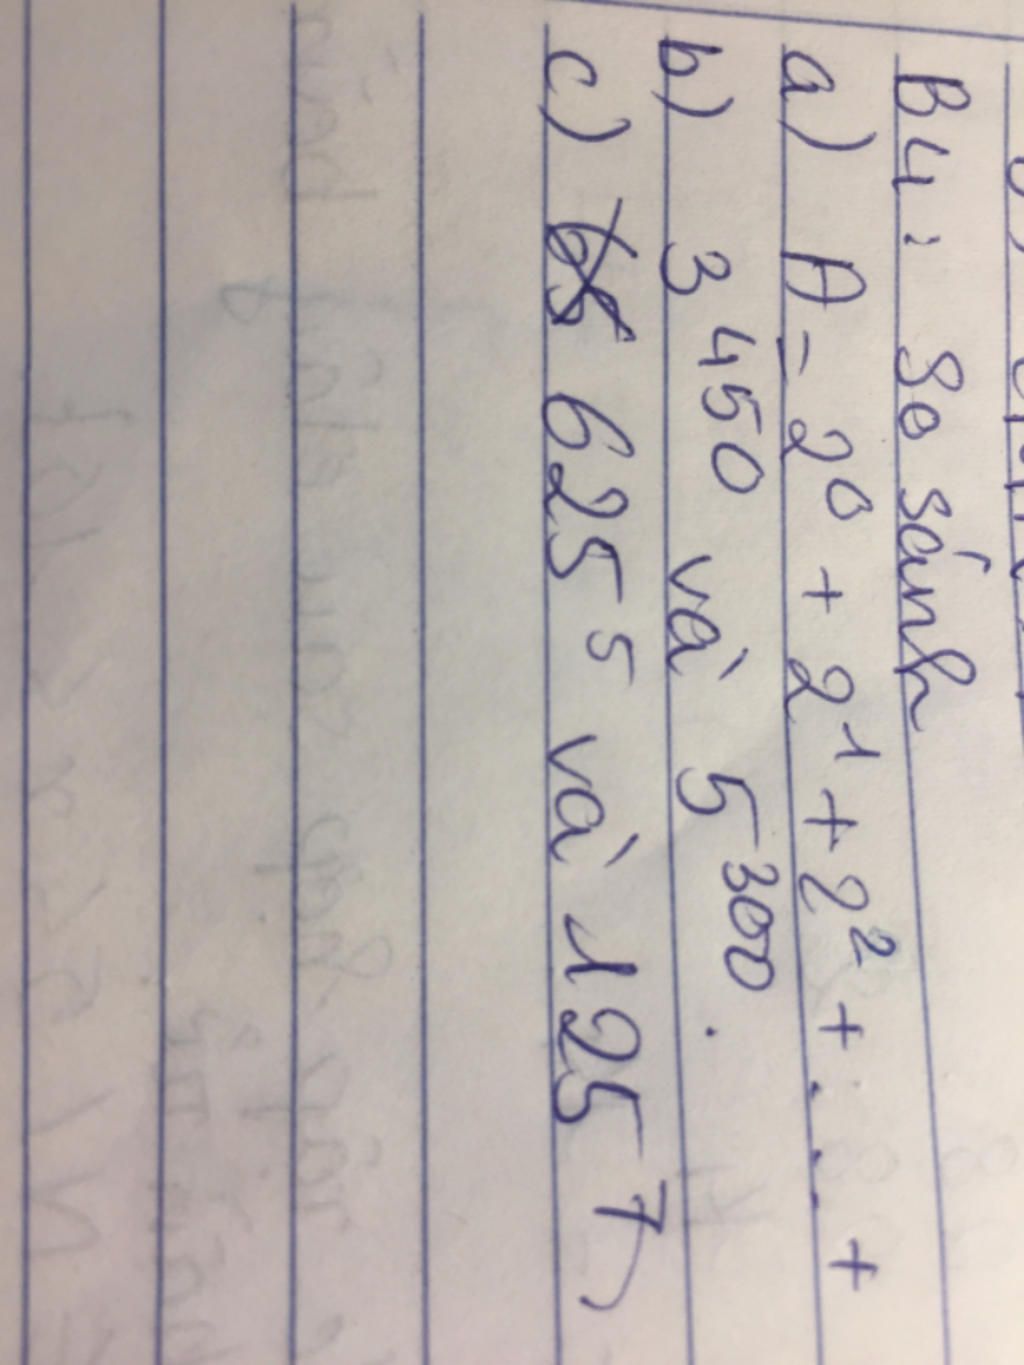 B4: So sánh
a) A = 2⁰ + 2¹ + 2² + ... +
b) 3⁴⁵⁰ và 5³⁰⁰.
c) 625⁵ và 125⁷